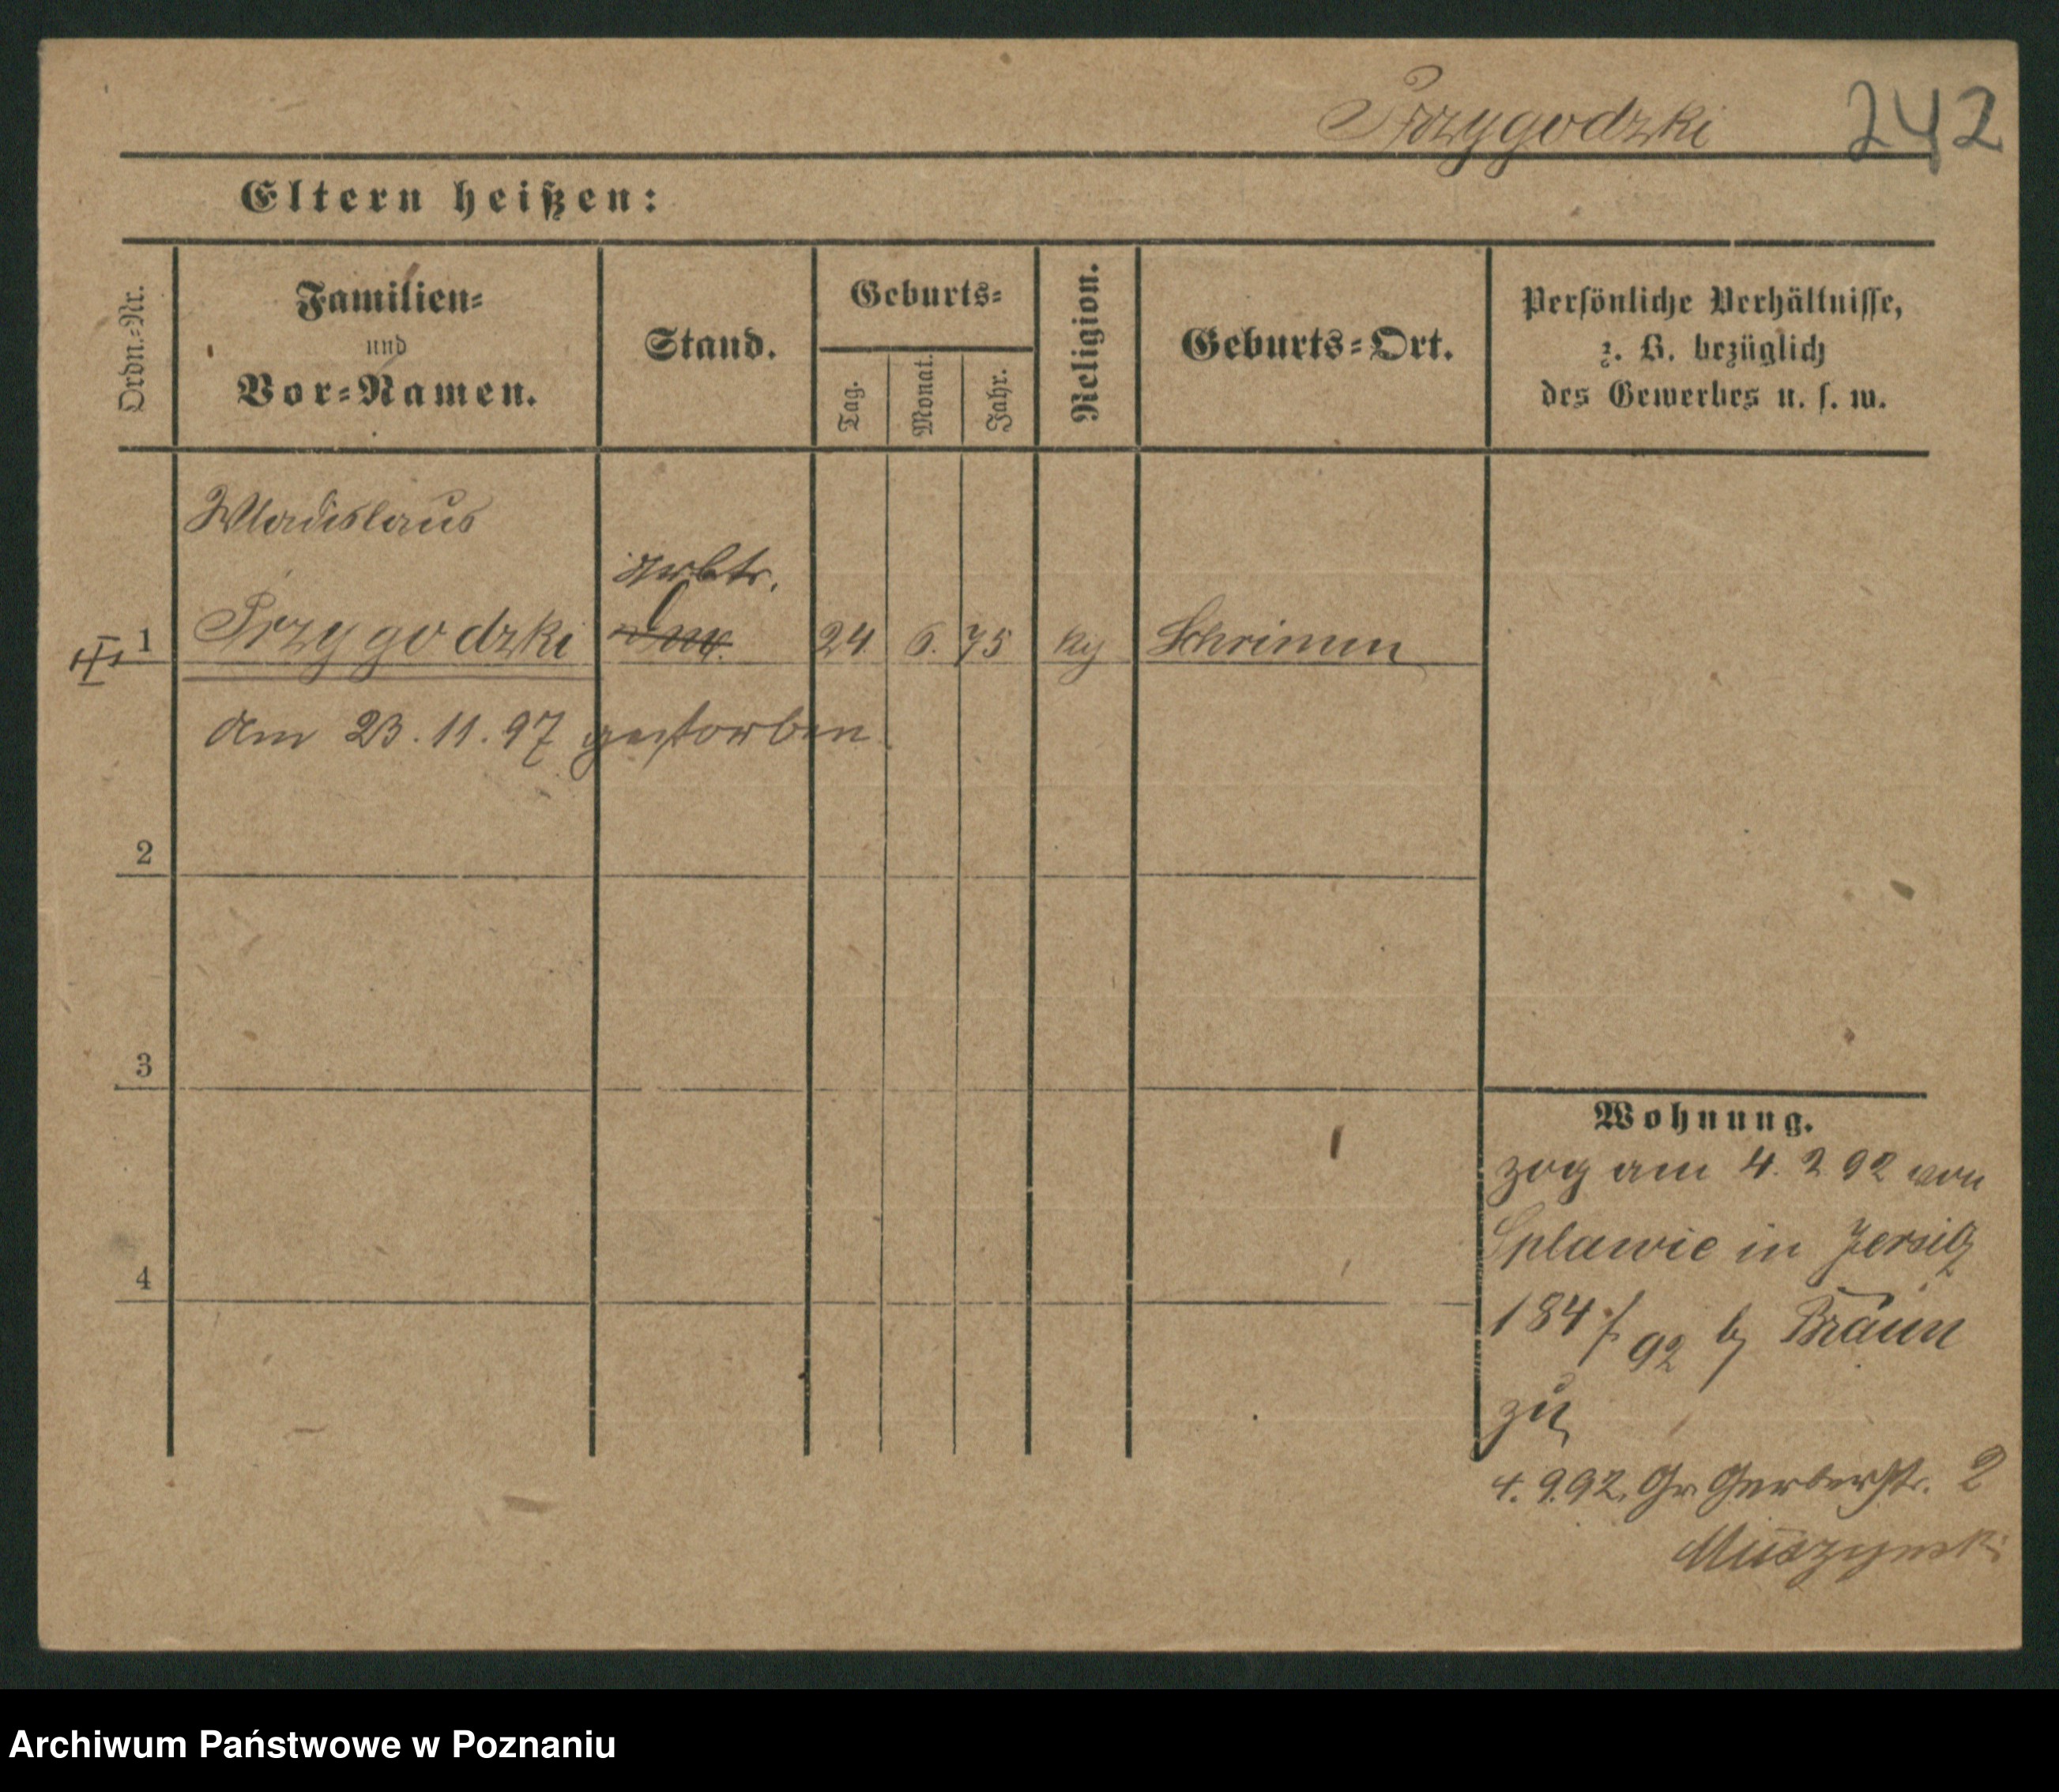 Przygodzki 242
Eltern heißen:
Ordn.-Nr.
Familien-
und
Vor-Namen.
Stand.
Geburts-
Tag.
Monat.
Jahr.
Religion.
Geburts-Ort.
Persönliche Verhältnisse,
z. B. bezüglich
des Gewerbes u. s. w.
Wladislaus
Arbtr.
1 Przygodzki 24 6. 75 kg Schrimm
am 23.11.97 gestorben
2
3
4
Wohnung.
zog am 4. 2 92 von
Splawie in Jersitz
184 f. 92 b Braun
zu
4. 9.92. Gr. Gerberstr. 2
Muszynski
Archiwum Państwowe w Poznaniu